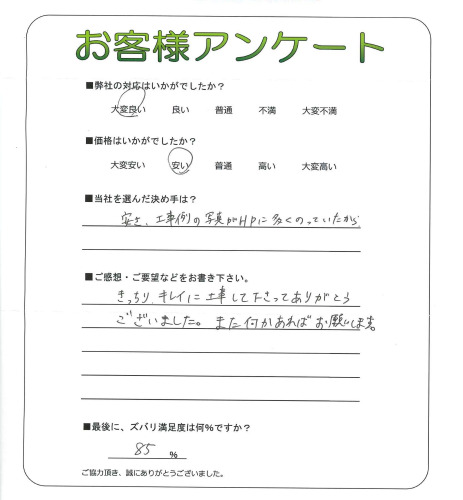 お客様アンケート
■弊社の対応はいかがでしたか？
大変良い 良い 普通 不満 大変不満
■価格はいかがでしたか？
大変安い 安い 普通 高い 大変高い
■当社を選んだ決め手は？
安さ、工事例の写真がHPに多くのっていたから
■ご感想・ご要望などをお書き下さい。
きっちり キレイに工事して下さってありがとう
ございました。また何かあればお願いします。
■最後に、ズバリ満足度は何％ですか？
85 %
ご協力頂き、誠にありがとうございました。